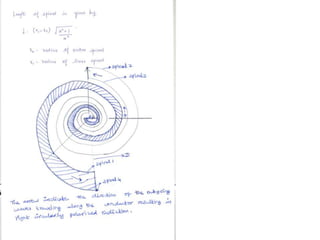 Length of spiral is given by
L = (r2 - r1) √(a²+1 / a²)
r2 - radius of outer spiral
r1 - radius of inner spiral
spiral 2
spiral 3
spiral 1
spiral 4
The arrow indicates the direction of the outgoing
waves travelling along the conductor resulting in
right circularly polarised radiation.